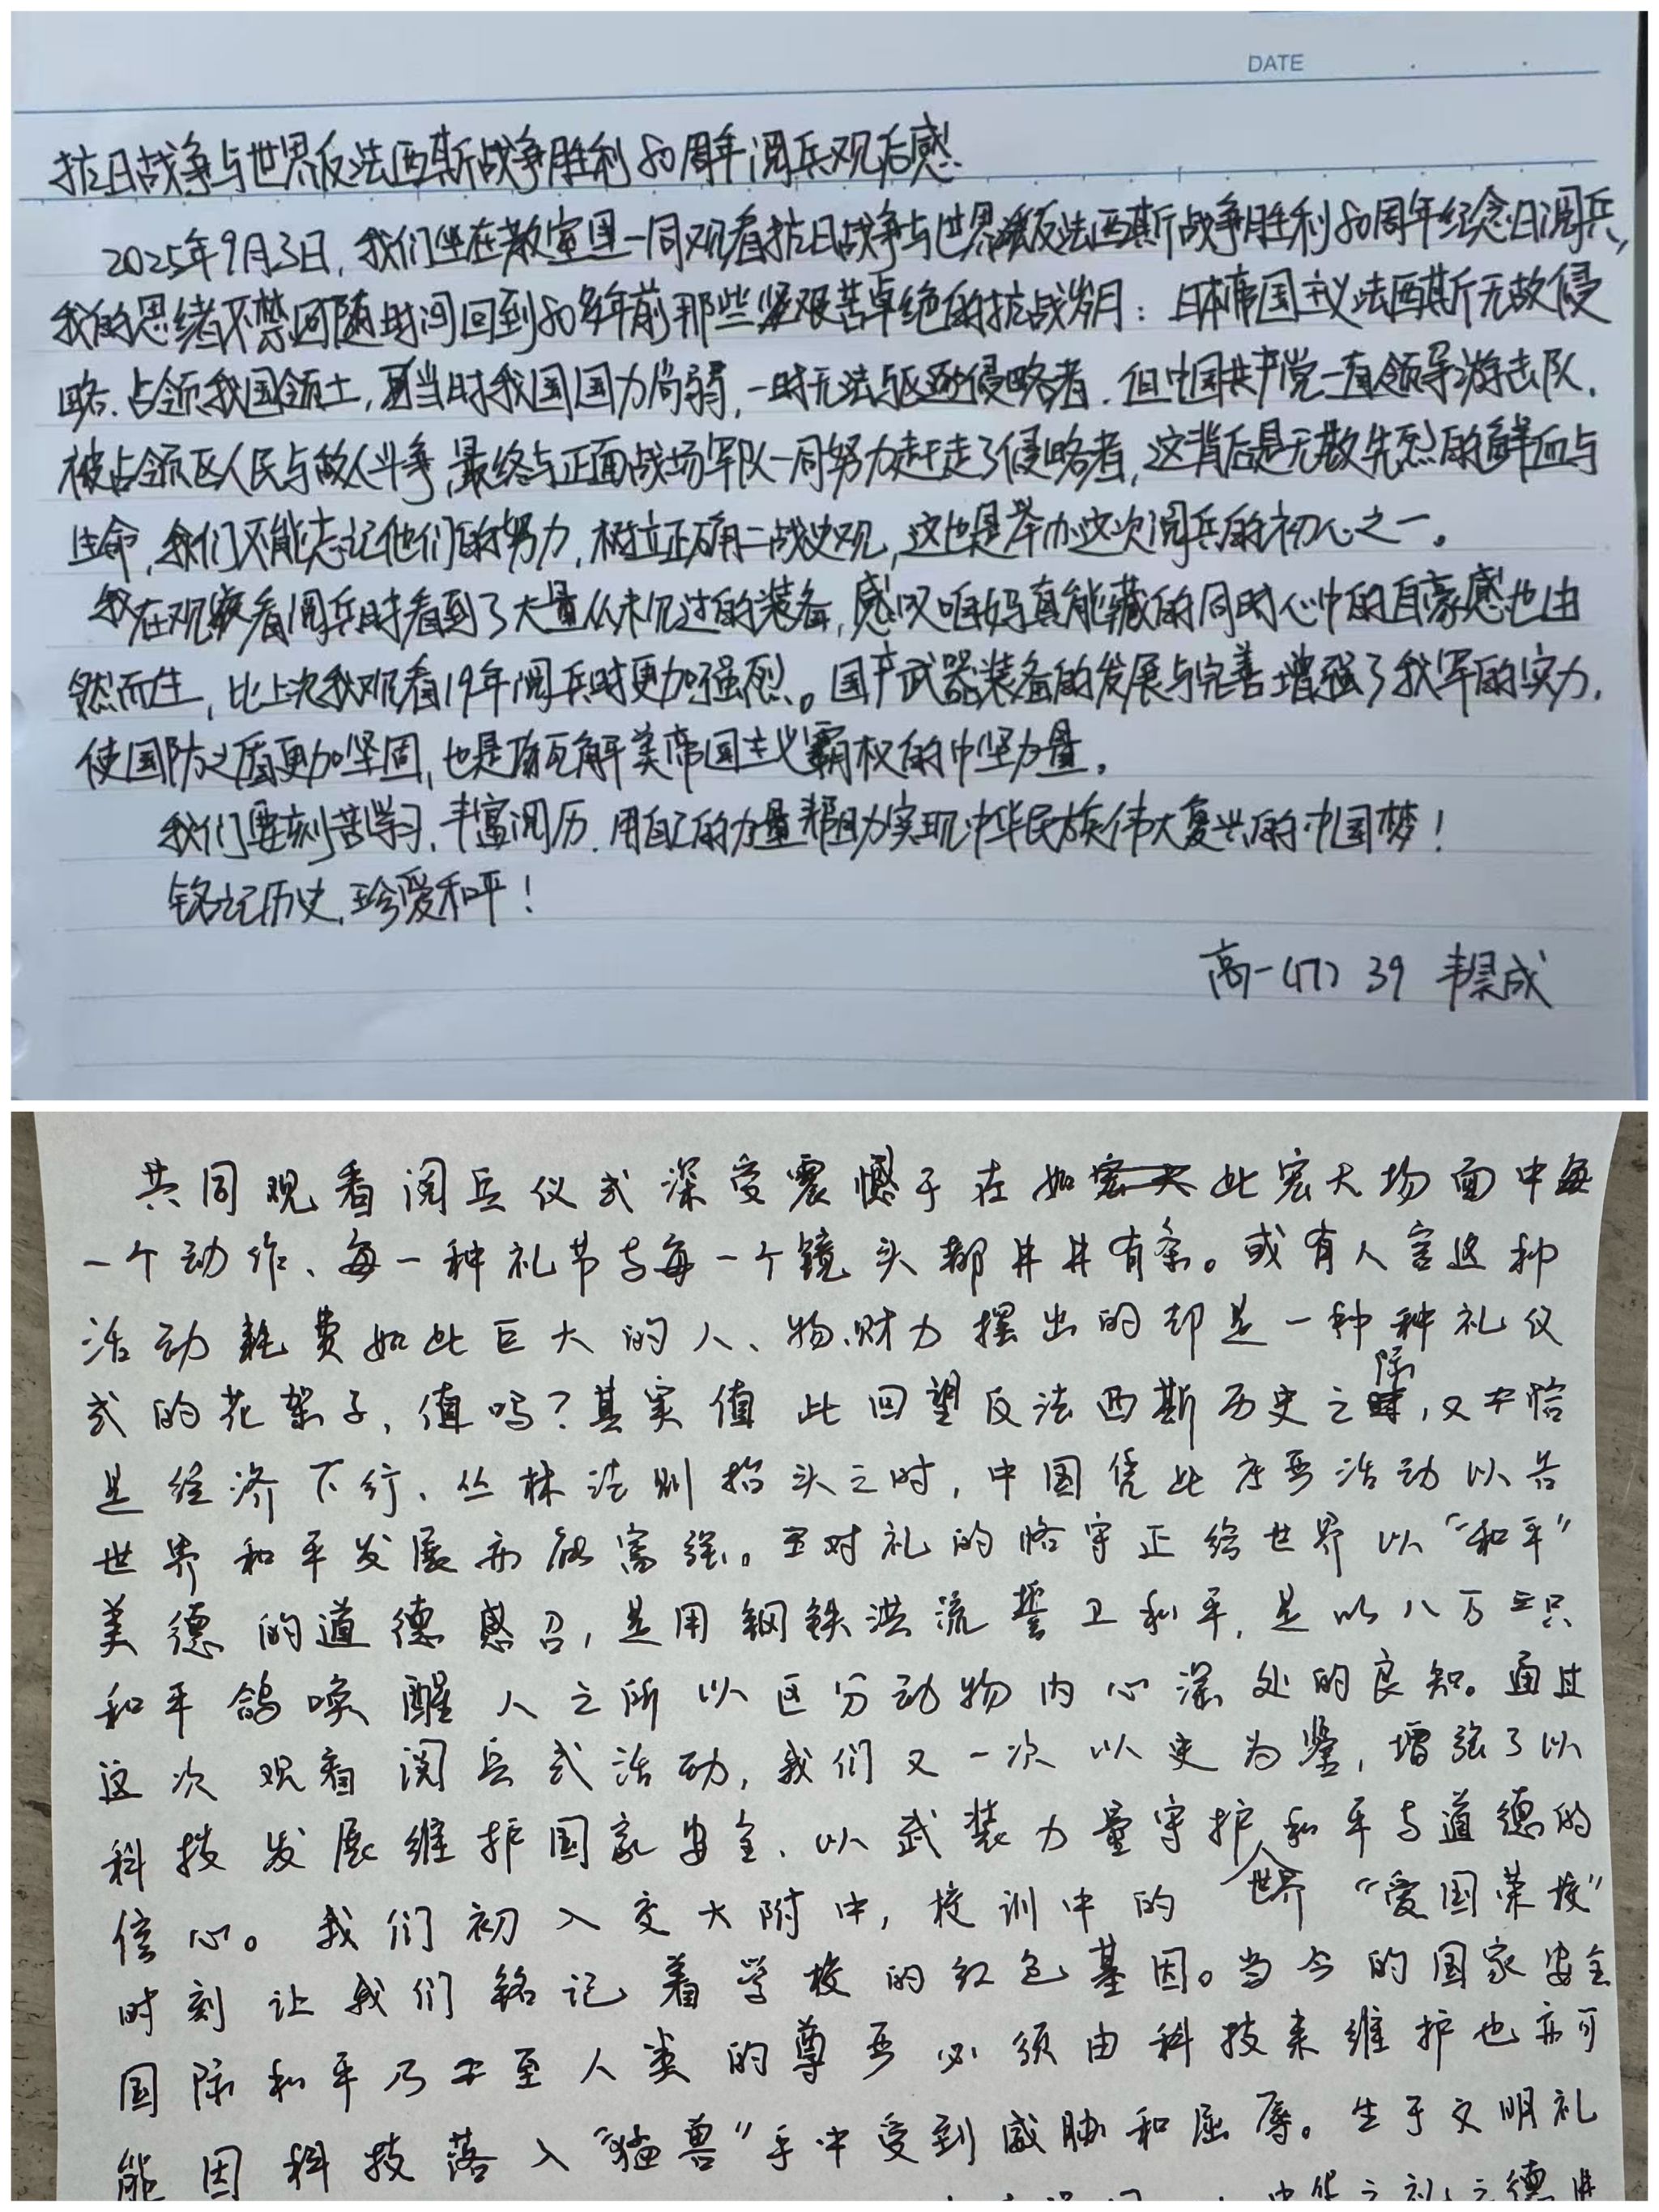 DATE
抗日战争与世界反法西斯战争胜利80周年阅兵观后感
2025年9月3日，我们坐在教室里一同观看抗日战争与世界反法西斯战争胜利80周年纪念日阅兵，
我的思绪不禁随时间回到80多年前那些艰苦卓绝的抗战岁月：日本帝国主义法西斯无故侵
略、占领我国领土，当时我国国力尚弱，一时无法驱逐侵略者，但中国共产党一直领导游击队、
被占领区人民与敌人斗争，最终与正面战场军队一同努力赶走了侵略者，这背后是无数先烈的鲜血与
生命，我们不能忘记他们的努力，树立正确二战史观，这也是举办这次阅兵的初心之一。
我在观看阅兵时看到了大量从未见过的装备，感叹咱妈真能藏的同时心中的自豪感也由
然而生，比上次我观看19年阅兵时更加强烈。国产武器装备的发展与完善增强了我军的实力，
使国防之盾更加坚固，也是瓦解美帝国主义霸权的中坚力量。
我们要刻苦学习，丰富阅历，用自己的力量帮助实现中华民族伟大复兴的中国梦！
铭记历史，珍爱和平！
高一(17) 39 韦昊成
共同观看阅兵仪式深受震憾于在如此宏大场面中每
一个动作、每一种礼节与每一个镜头都井井有条。或有人言这种
活动耗费如此巨大的人、物、财力摆出的却是一种种礼仪
式的花架子，值吗？其实值 此回望反法西斯历史之际，又恰
是经济下行、丛林法则抬头之时，中国凭此庄严活动以告
世界和平发展亦能富强。对礼的恪守正给世界以“和平”
美德的道德感召，是用钢铁洪流誓卫和平，是以八万只
和平鸽唤醒人之所以区分动物内心深处的良知。通过
这次观看阅兵式活动，我们又一次以史为鉴，增强了以
科技发展维护国家安全、以武装力量守护世界和平与道德的
信心。我们初入交大附中，校训中的“爱国荣校”
时刻让我们铭记着学校的红色基因。当今的国家安全
国际和平乃至人类的尊严必须由科技来维护也亦可
能因科技落入“猛兽”手中受到威胁和屈辱。生于文明礼
中华之礼之德